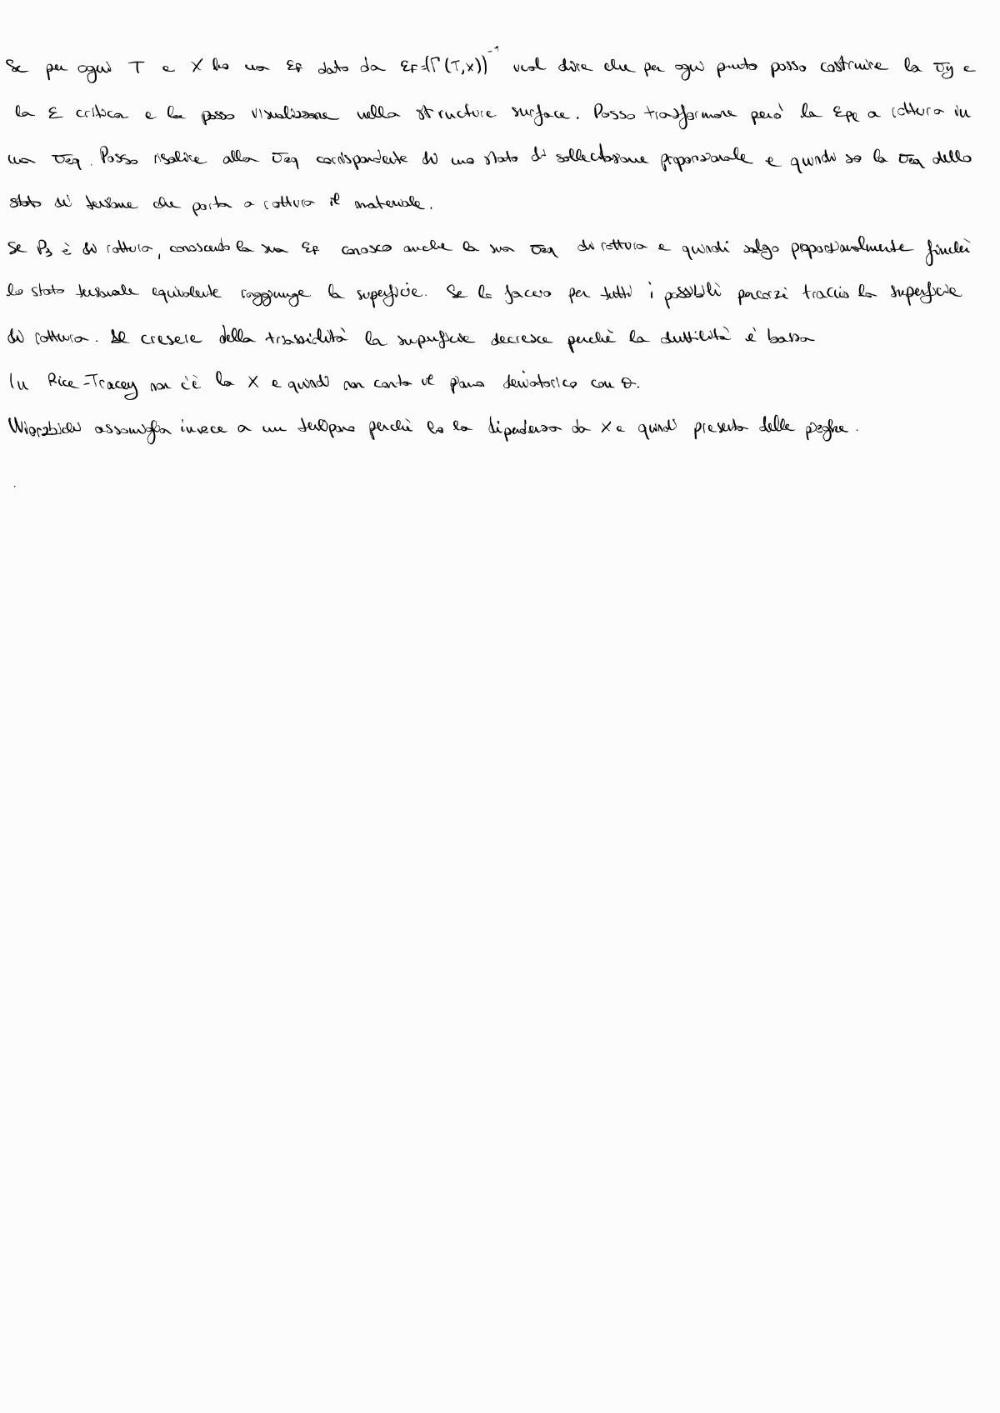 Se per ogni T e X ho una εF dato da εF=(Γ(T,X))⁻¹ vuol dire che per ogni punto posso costruire la σy e
la ε critica e la posso visualizzare nella structure surface. Posso trasformare però la εpl a rottura in
una σeq. Posso risalire alla σeq corrispondente di uno stato di sollecitazione proporzionale e quindi so la σeq dello
stato di tensione che porta a rottura il materiale.
Se P3 è di rottura, conoscendo la sua εF conosco anche la sua σeq di rottura e quindi salgo proporzionalmente finchè
lo stato tensionale equivalente raggiunge la superficie. Se lo faccio per tutti i possibili percorsi traccio la superficie
di rottura. Al crescere della triassialità la superficie decresce perchè la duttilità è bassa
In Rice-Tracey non c'è la X e quindi non conta il piano deviatorico con θ.
Wierzbicki assomiglia invece a un perchè ho la dipendenza da X e quindi presenta delle pieghe.